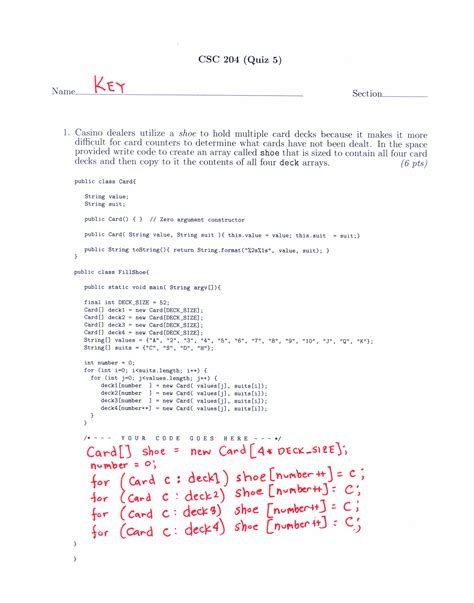 CSC 204 (Quiz 5)
Name KEY Section
1. Casino dealers utilize a shoe to hold multiple card decks because it makes it more
difficult for card counters to determine what cards have not been dealt. In the space
provided write code to create an array called shoe that is sized to contain all four card
decks and then copy to it the contents of all four deck arrays. (6 pts)
public class Card{
String value;
String suit;
public Card() { } // Zero argument constructor
public Card( String value, String suit ){ this.value = value; this.suit = suit;}
public String toString(){ return String.format("%2s%1s", value, suit); }
}
public class FillShoe{
public static void main( String argv[]){
final int DECK_SIZE = 52;
Card[] deck1 = new Card[DECK_SIZE];
Card[] deck2 = new Card[DECK_SIZE];
Card[] deck3 = new Card[DECK_SIZE];
Card[] deck4 = new Card[DECK_SIZE];
String[] values = {"A", "2", "3", "4", "5", "6", "7", "8", "9", "10", "J", "Q", "K"};
String[] suits = {"C", "S", "D", "H"};
int number = 0;
for (int i=0; i<suits.length; i++) {
for (int j=0; j<values.length; j++) {
deck1[number ] = new Card( values[j], suits[i]);
deck2[number ] = new Card( values[j], suits[i]);
deck3[number ] = new Card( values[j], suits[i]);
deck4[number++] = new Card( values[j], suits[i]);
}
}
/* - - - - YOUR CODE GOES HERE - - - */
Card[] shoe = new Card[4* DECK_SIZE];
number = 0;
for (Card c : deck1) shoe[number++] = c;
for (Card c : deck2) shoe [number++] = c;
for (Card c : deck3) shoe [number++] = c;
for (Card c : deck4) shoe [number++] = c;
}
}